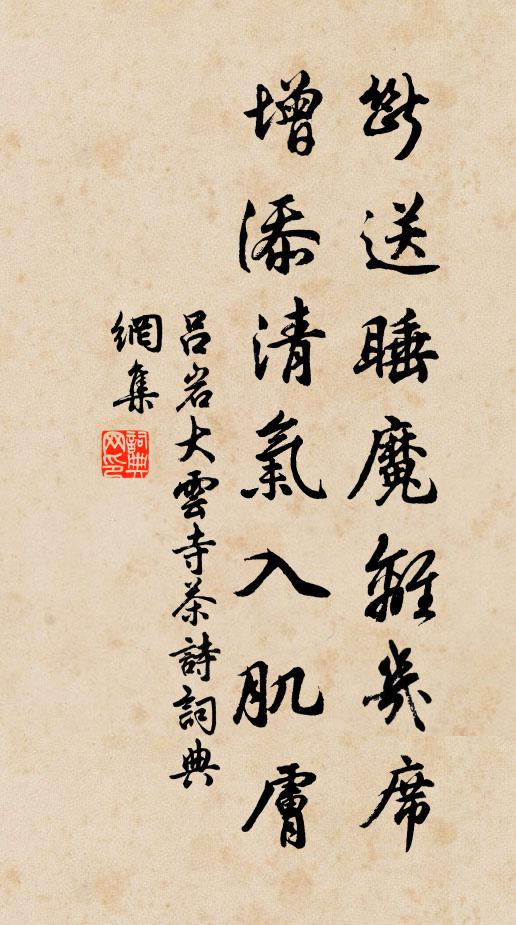 斷送睡魔離几席
增添清氣入肌膚
呂岩大雲寺茶詩詞典
網集
詞典網印